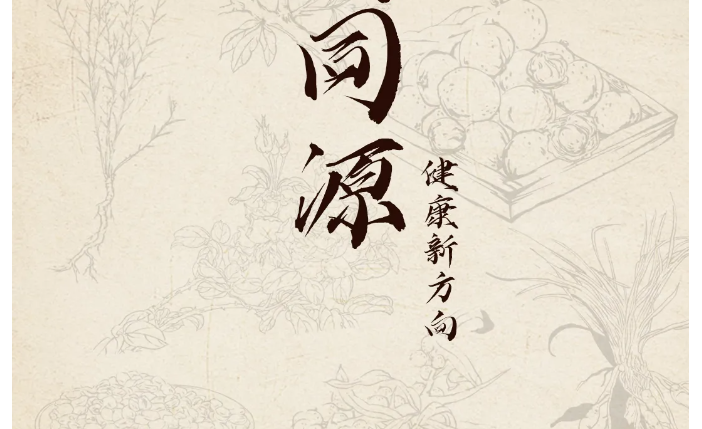 同源
健康新方向